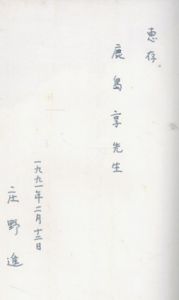 恵存。
鹿島享先生
一九九一年二月十三日
庄野進